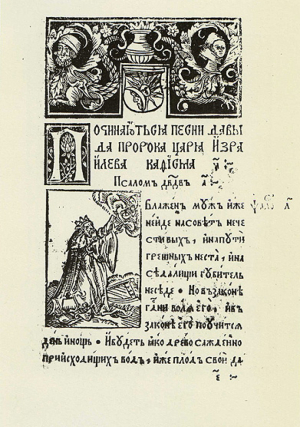 Починаються песни давы
да пророка царꙗ Изра
илева кафисма а҃
Псаломъ дв҃дв а҃
Блаженъ мужъ иже
нейде насоветъ нече
стивыхъ, инапути
грешныхъ неста, ина
седалищи губитель
неседе · Но вьзаконе
г҃ни волꙗ его, ивъ
законе его поучится
день инощь · Ибудеть ꙗко древо сажѣнно
приисходищихъ водъ, иже плодъ свой да